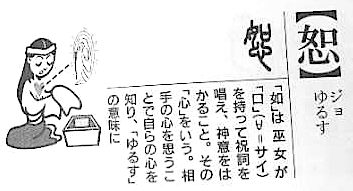 【恕】
ジョ
ゆるす
「如」は巫女が
「口」(ㅂ=サイ)
を持って祝詞を
唱え、神意をは
かること。その
「心」をいう。相
手の心を思うこ
とで自らの心を
知り、「ゆるす」
の意味に